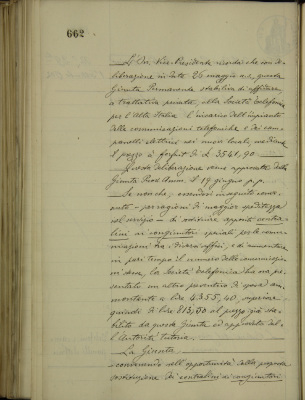 662
L'On. Vice-Presidente ricorda che con de-
liberazione in data 26 maggio a.c., questa
Giunta Permanente stabiliva di affidare,
a trattativa privata, alla Società telefonica
per l'Alta Italia l'incarico dell'impianto
delle comunicazioni telefoniche e dei cam-
panelli elettrici nei nuovi locali, mediante
il prezzo à forfait di L. 3541,90
Questa deliberazione venne approvata dalla
Giunta Prov. Amm. il 19 giugno p.p.
Se non che, essendosi in seguito conve-
nuto - per ragioni di maggiore speditezza
nel servizio - di sostituire appositi centra-
lini ai congiuntori speciali per le comu-
nicazioni tra i diversi uffici, e di aumentare
in pari tempo il numero delle comunicazioni
stesse, la Società telefonica ha ora pre-
sentato un altro preventivo di spesa am-
montante a lire 4355,40, superiore
quindi di lire 813,50 al prezzo già sta-
bilito da questa Giunta ed approvato dal-
l'Autorità tutoria.
La Giunta
convenendo sull'opportunità della proposta
sostituzione dei centralini ai congiuntori